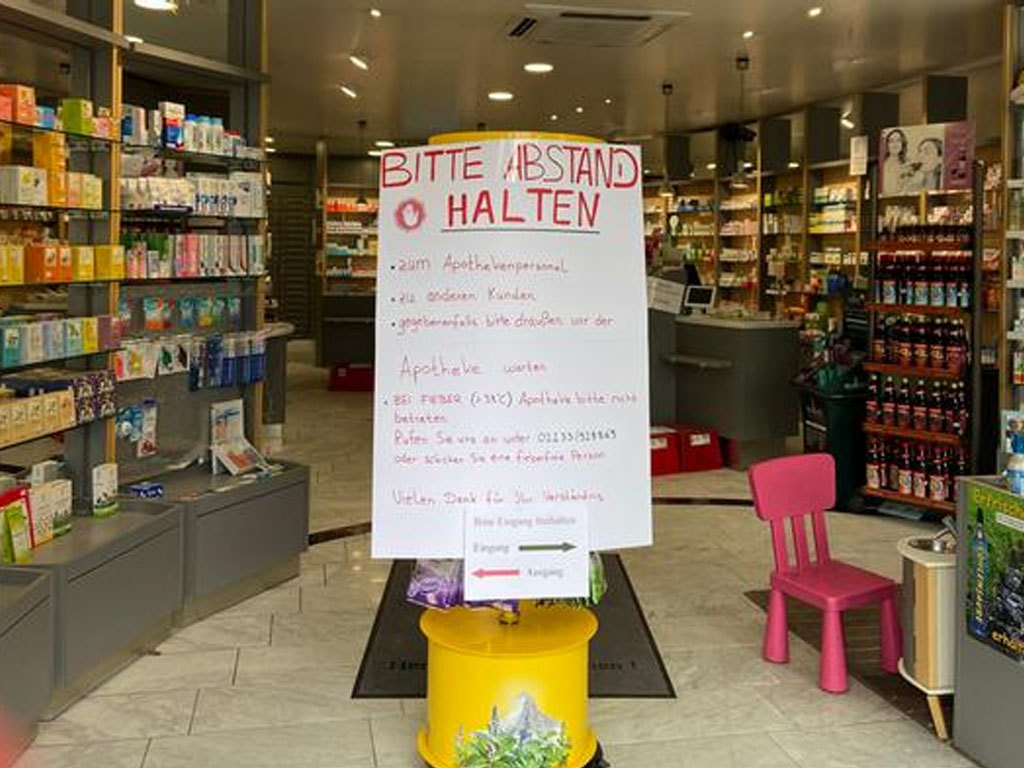 BITTE ABSTAND
HALTEN
• zum Apothekenpersonal
• zu anderen Kunden
• gegebenenfalls bitte draußen vor der
Apotheke warten
• BEI FIEBER (>38°C) Apotheke bitte nicht
betreten.
Rufen Sie uns an unter
oder schicken Sie eine fieberfreie Person
Vielen Dank für Ihr Verständnis
Bitte Eingang freihalten
Eingang
Ausgang